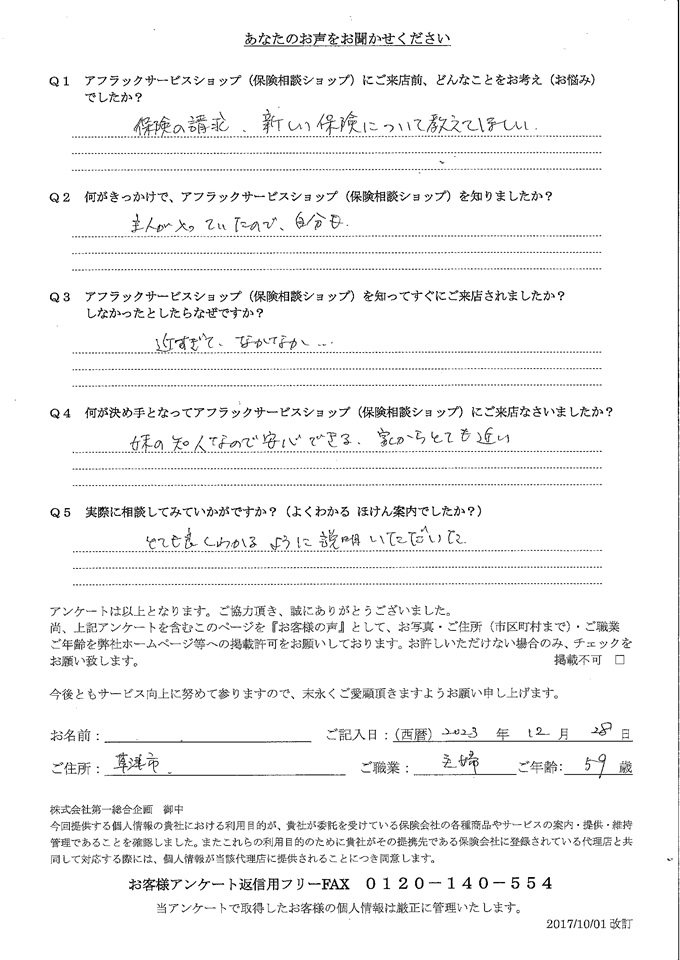 あなたのお声をお聞かせください
Q1 アフラックサービスショップ（保険相談ショップ）にご来店前、どんなことをお考え（お悩み）
でしたか？
保険の請求、新しい保険について教えてほしい.
Q2 何がきっかけで、アフラックサービスショップ（保険相談ショップ）を知りましたか？
主人がやっていたので、自分も.
Q3 アフラックサービスショップ（保険相談ショップ）を知ってすぐにご来店されましたか？
しなかったとしたらなぜですか？
近すぎて、なかなか…
Q4 何が決め手となってアフラックサービスショップ（保険相談ショップ）にご来店なさいましたか？
妹の知人なので安心できる、家からとても近い
Q5 実際に相談してみていかがですか？（よくわかる ほけん案内でしたか？）
とても良くわかるように説明いただいた
アンケートは以上となります。ご協力頂き、誠にありがとうございました。
尚、上記アンケートを含むこのページを『お客様の声』として、お写真・ご住所（市区町村まで）・ご職業
ご年齢を弊社ホームページ等への掲載許可をお願いしております。お許しいただけない場合のみ、チェックを
お願い致します。 掲載不可 □
今後ともサービス向上に努めて参りますので、末永くご愛顧頂きますようお願い申し上げます。
お名前： ご記入日：（西暦）2023 年 12 月 28 日
ご住所： 草津市 ご職業： 主婦 ご年齢： 59 歳
株式会社第一総合企画 御中
今回提供する個人情報の貴社における利用目的が、貴社が委託を受けている保険会社の各種商品やサービスの案内・提供・維持
管理であることを確認しました。またこれらの利用目的のために貴社がその提携先である保険会社に登録されている代理店と共
同して対応する際には、個人情報が当該代理店に提供されることにつき同意します。
お客様アンケート返信用フリーFAX 0120－140－554
当アンケートで取得したお客様の個人情報は厳正に管理いたします。
2017/10/01 改訂